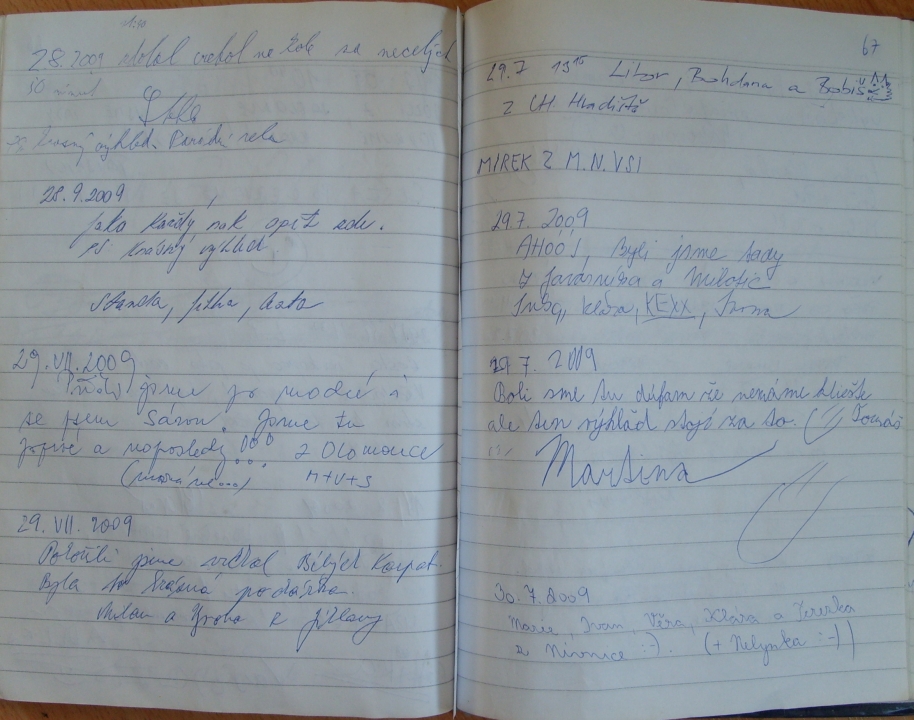 1:40
28.2009 zdolal vrchol na kole za necelých
50 minut
krásný výhled. Parádní
28.9.2009
jako každý rok opět zde.
PS krásný výhled.
Standa, Jitka,
29. VII. 2009
jsme po modré
se psem Sárou. Jsme tu
poprvé a naposledy z Olomouce
(možná ne...) M+V+S
29. VII. 2009
Pokořili jsme vrchol Bílých Karpat.
Byla to krásná podívaná.
Milan a z Jihlavy
67
29.7 1315 Libor, Bohdana a Bobiš
z UH Hradiště
MIREK Z M.N. VSI
29.7. 2009
AHOÓJ, Byli jsme tady
z Javorníka a Milotic
Klára, KEXX, Ivona
29.7. 2009
Boli sme tu dúfam že nemáme kliešte
ale ten výhľad stojí za to. Tomáš
Martina
30.7.2009
Marie, Ivan, Věra, Klára a Terezka
z Nivnice :-). (+ Nelynka :-))